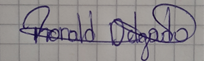 Rhonald Delgado